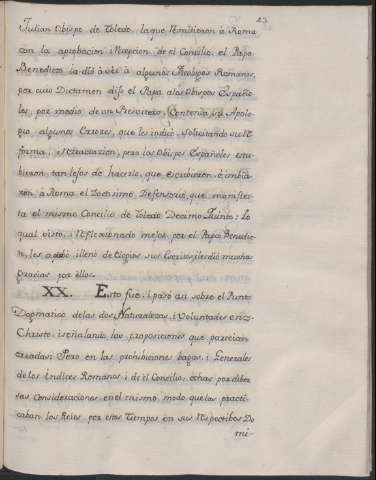 23
Julian Obispo de Toledo, la que Remitieron à Roma
con la aprobacion i Recepcion de el Concilio. el Papa
Benedicto la dio à vèr à algunos Theologos Romanos,
por cuio Dictamen dijo el Papa à los Obispos Españo-
les, por medio de un Presvitero, Contenia su Apolo-
gia, algunos Errores, que les indicò, solicitando su Re
forma, i Retractacion, pero los Obispos Españoles estu-
bieron tan lejos de hacerlo, que escribieron, ò embia-
ron à Roma el Doctisimo Defensorio, que manifies-
ta el mismo Concilio de Toledo Decimo Quinto: Lo
qual visto, i Reflexionado mejor, por el Papa Benedic-
to, les aprobò i llenò de Elogios sus Escritos, i les diò muchas
gracias por ellos.
XX. Esto fue, i pasò asi sobre el Punto
Dogmatico de las dos Naturalezas, i Voluntades en
Christo, i señalando las proposiciones que parecian
erradas; Pero en las prohibiciones bagas, i Generales
de los Indices Romanos, i de el Concilio, echas por diber
sas Consideraciones, en el mismo modo que las practi-
caban los Reies por estos Tiempos en sus Respectibos Do
mi-